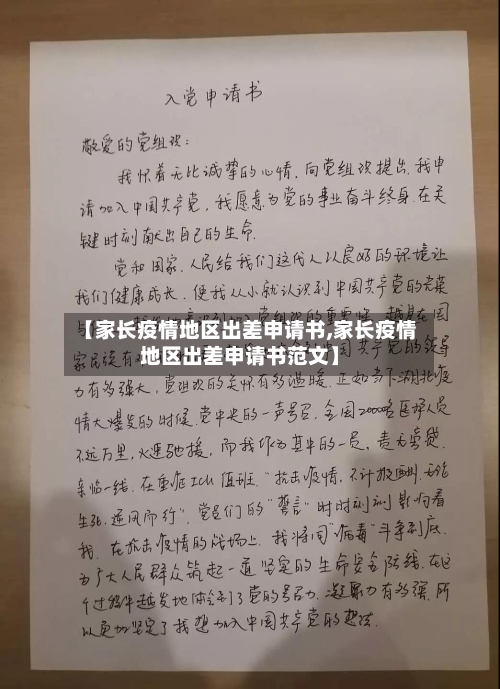 入党申请书
敬爱的党组织：
我怀着无比诚挚的心情，向党组织提出，我申
请加入中国共产党，我愿意为党的事业奋斗终身.在关
键时刻献出自己的生命.
党和国家.人民给我们这代人以良好的环境让
我们健康成长.使我从小就认识到中国共产党的光荣
【家长疫情地区出差申请书,家长疫情
地区出差申请书范文】
力有多强大，党组织的关怀有多温暖.正如当下湖北疫
情大爆发的时候.党中央的一声号召.全国20000名医护人员
不远万里，火速驰援，而我作为其中的一员，责无旁贷.
亲临一线.在重症ICU值班."抗击疫情，不计报酬.无论
生死.逆风而行".党员们的"誓言"时时刻刻影响着
我.在抗击疫情的战场上.我将同"病毒"斗争到底.
为广大人民群众筑起一道坚定的生命安全防线.在这
个过程中越发地体会到了党的号召力.凝聚力有多强.所
以更加坚定了我想加入中国共产党的想法.